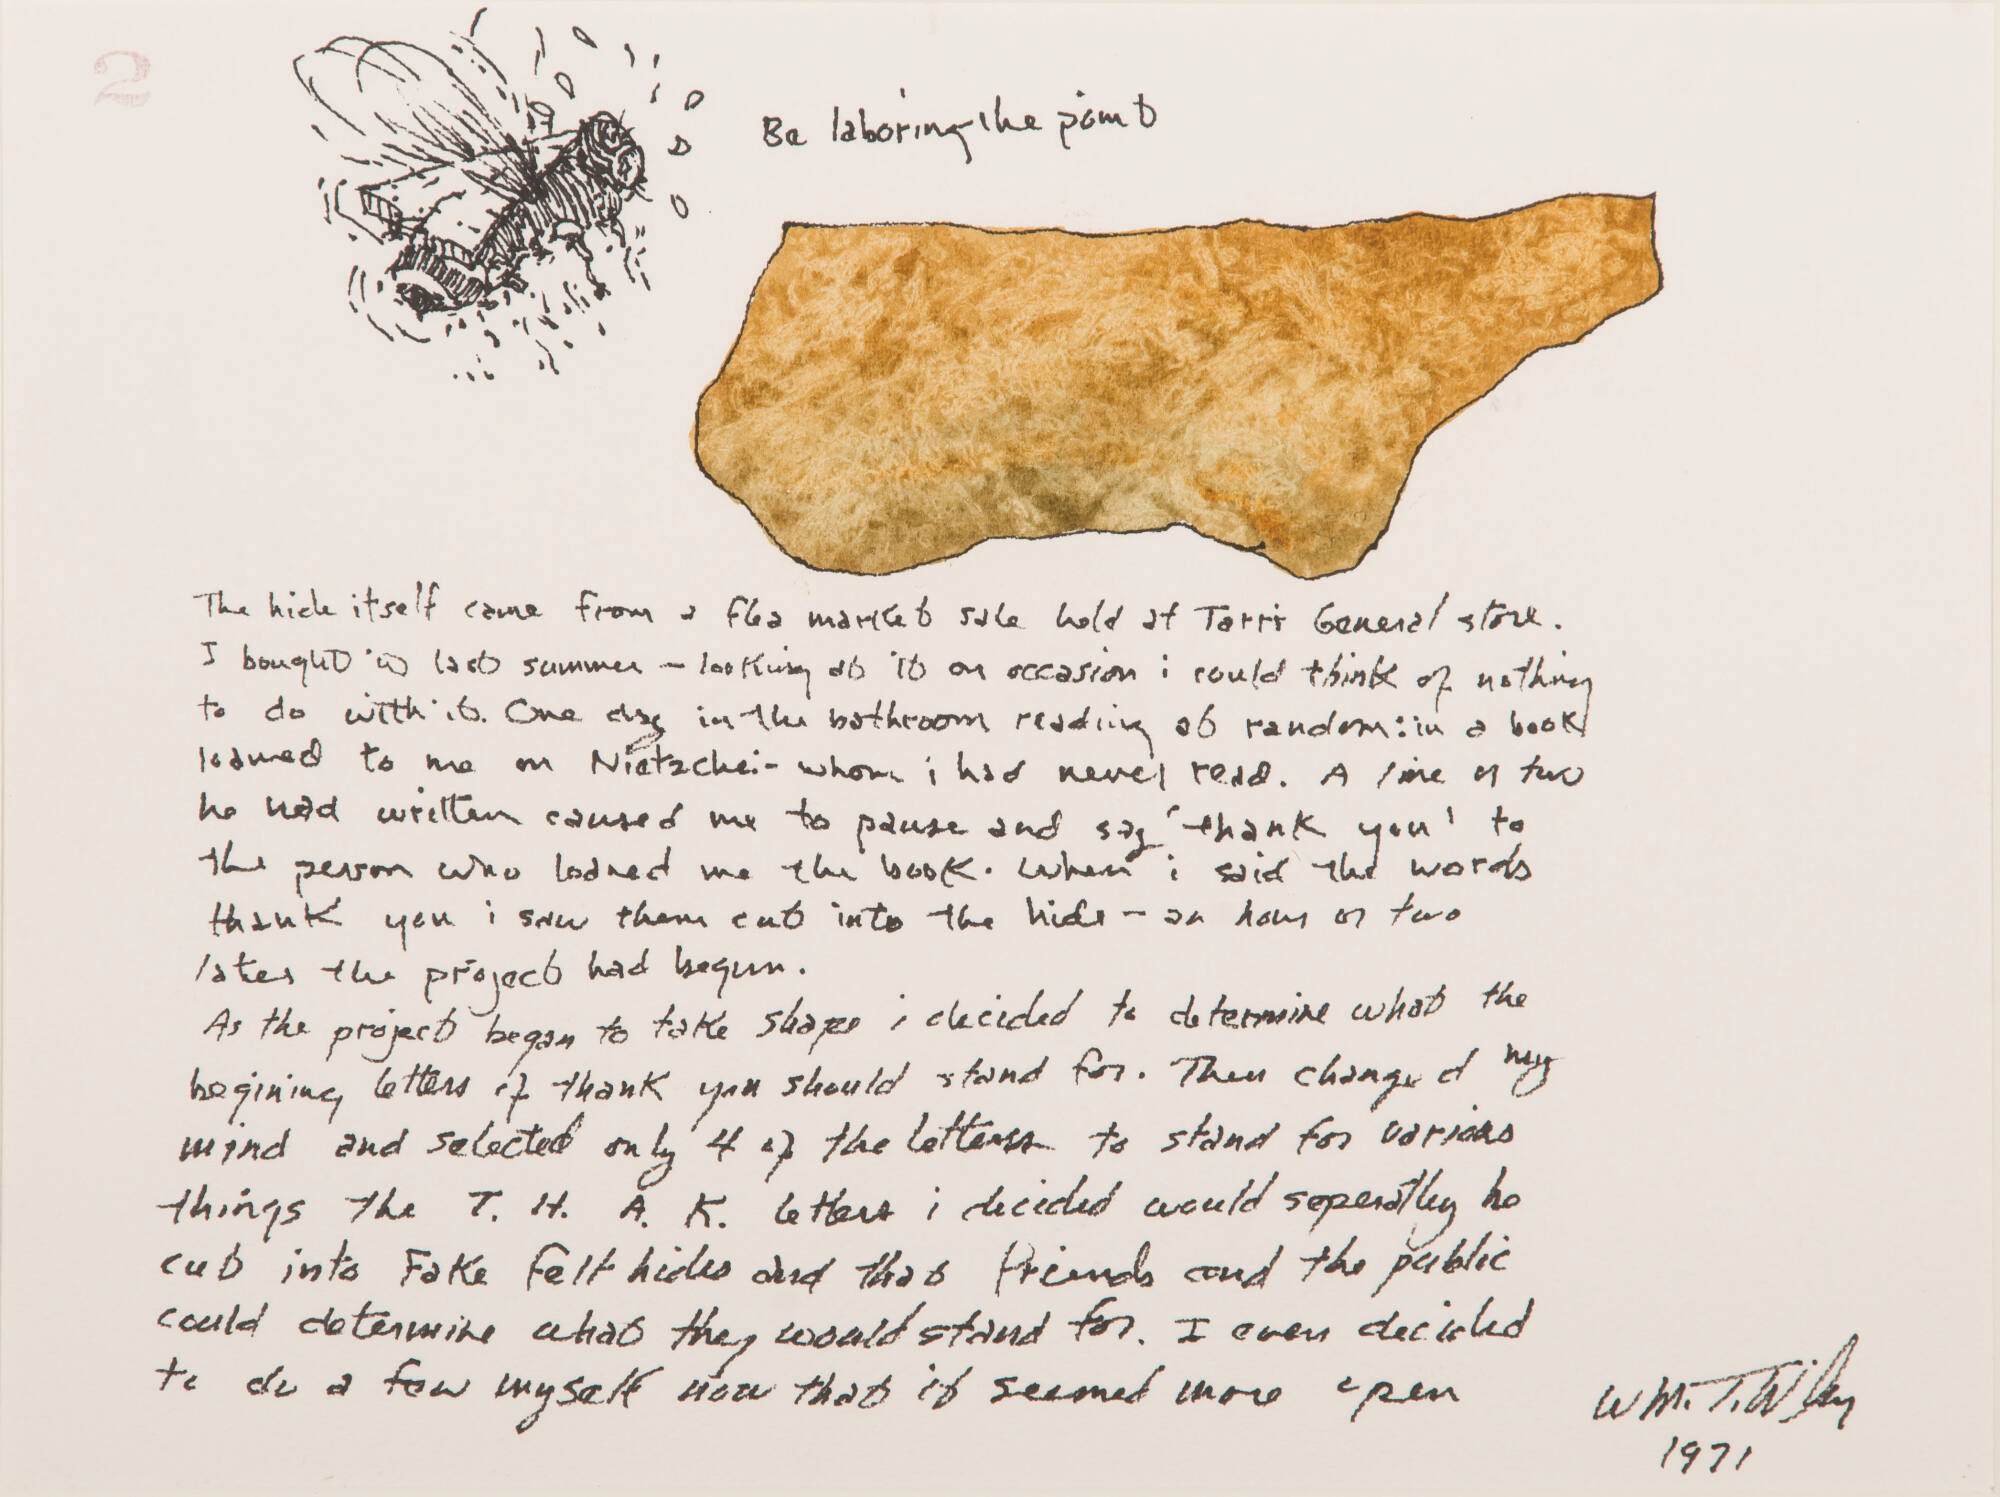 2
Be laboring the point
The hide itself came from a flea market sale held at Tarrs General store.
I bought it last summer – looking at it on occasion i could think of nothing
to do with it. One day in the bathroom reading at random: in a book
loaned to me on Nietzchei- whom i had never read. A line or two
he had written caused me to pause and say 'thank you' to
the person who loaned me the book. When i said the words
thank you i saw them cut into the hide – an hour or two
later the project had begun.
As the project began to take shape i decided to determine what the
begining letters of thank you should stand for. Then changed my
mind and selected only 4 of the letters to stand for various
things the T. H. A. K. letters i decided would seperatley be
cut into Fake Felt hides and that friends and the public
could determine what they would stand for. I even decided
to do a few myself now that it seemed more open
Wm. T. Wiley
1971